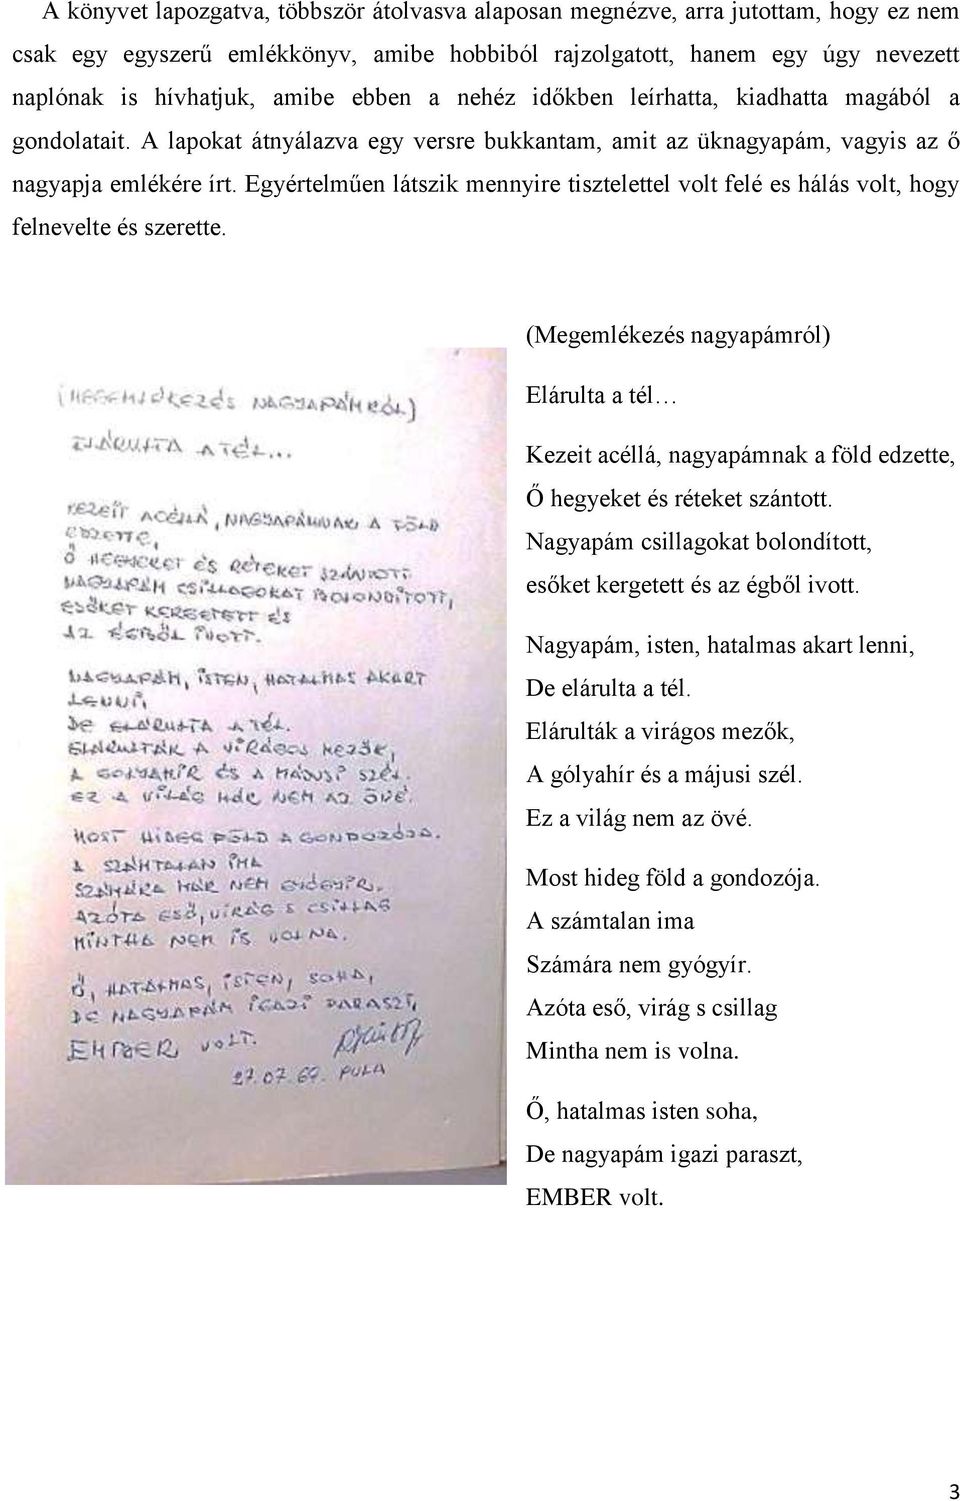 A könyvet lapozgatva, többször átolvasva alaposan megnézve, arra jutottam, hogy ez nem
csak egy egyszerű emlékkönyv, amibe hobbiból rajzolgatott, hanem egy úgy nevezett
naplónak is hívhatjuk, amibe ebben a nehéz időkben leírhatta, kiadhatta magából a
gondolatait. A lapokat átnyálazva egy versre bukkantam, amit az üknagyapám, vagyis az ő
nagyapja emlékére írt. Egyértelműen látszik mennyire tisztelettel volt felé es hálás volt, hogy
felnevelte és szerette.
(MEGEMLÉKEZÉS NAGYAPÁMRÓL)
ELÁRULTA A TÉL...
KEZEIT ACÉLLÁ, NAGYAPÁMNAK A FÖLD
EDZETTE,
Ő HEGYEKET ÉS RÉTEKET SZÁNTOTT.
NAGYAPÁM CSILLAGOKAT BOLONDÍTOTT,
ESŐKET KERGETETT ÉS
AZ ÉGBŐL IVOTT.
NAGYAPÁM, ISTEN, HATALMAS AKART
LENNI,
DE ELÁRULTA A TÉL.
ELÁRULTÁK A VIRÁGOS MEZŐK,
A GÓLYAHÍR ÉS A MÁJUSI SZÉL.
EZ A VILÁG MÁR NEM AZ ÖVÉ.
MOST HIDEG FÖLD A GONDOZÓJA.
A SZÁMTALAN IMA
SZÁMÁRA MÁR NEM GYÓGYÍR.
AZÓTA ESŐ, VIRÁG S CSILLAG
MINTHA NEM IS VOLNA.
Ő, HATALMAS, ISTEN, SOHA,
DE NAGYAPÁM IGAZI PARASZT,
EMBER, VOLT.
27.07.69. PULA
(Megemlékezés nagyapámról)
Elárulta a tél…
Kezeit acéllá, nagyapámnak a föld edzette,
Ő hegyeket és réteket szántott.
Nagyapám csillagokat bolondított,
esőket kergetett és az égből ivott.
Nagyapám, isten, hatalmas akart lenni,
De elárulta a tél.
Elárulták a virágos mezők,
A gólyahír és a májusi szél.
Ez a világ nem az övé.
Most hideg föld a gondozója.
A számtalan ima
Számára nem gyógyír.
Azóta eső, virág s csillag
Mintha nem is volna.
Ő, hatalmas isten soha,
De nagyapám igazi paraszt,
EMBER volt.
3